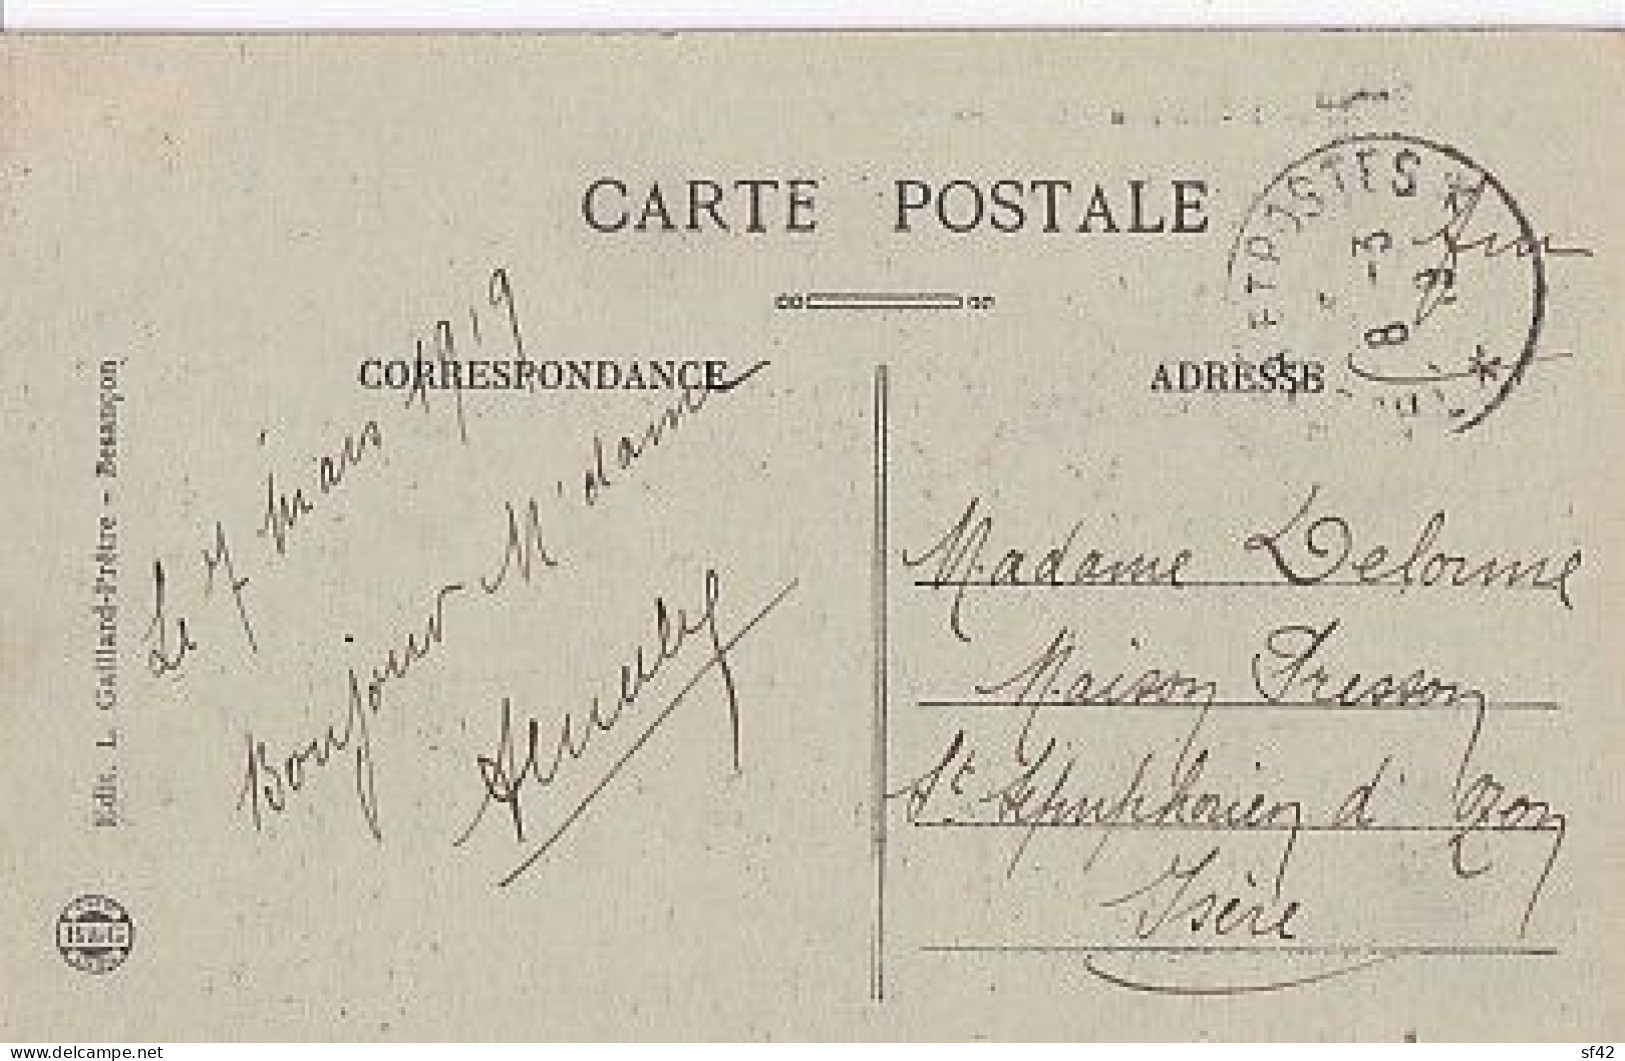 CARTE POSTALE
CORRESPONDANCE
ADRESSE
Le 7 mars 1919
Bonjour M'dame
Madame Delorme
Maison Fresson
St Symphorien d'Ozon
Isère
Edit. L. Gaillard-Prêtre - Besançon
POSTES
8 -3
https://www.delcampe.net
sf42